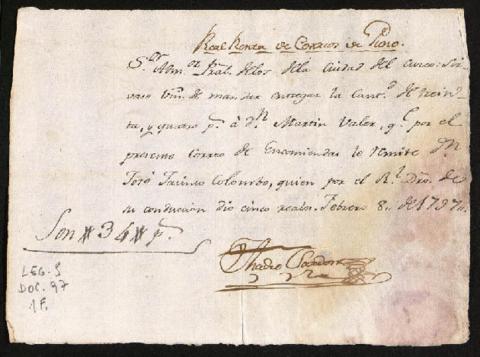 Real Renta de Correos de Puno.
S.or Adm.or Pral. de los de la Ciudad del Cuzco: Sir-
vase Vm. de mandar entregar la Cant.d de trein-
ta, y quatro p.s á D.n Martin Valer, q.e por el
presente Correo de Encomiendas le remite D.n
José Colombo, quien por el R.l Dro. de
su conducion dio cinco reales. Febrero 8. de 1797.
Son # 34 # p.s
LEG. 5
DOC. 97
1 F.